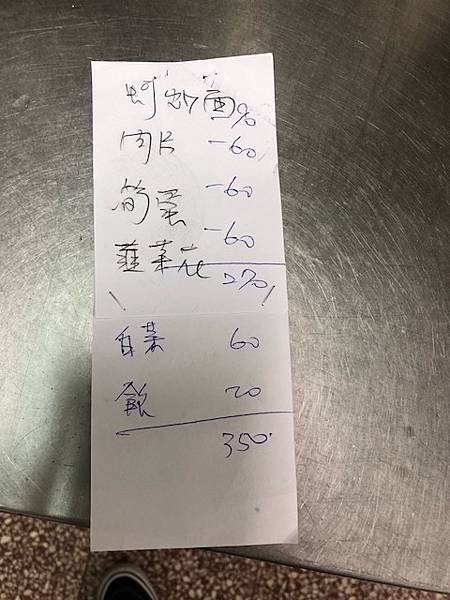 蚵 面 90
肉片 -60
筍蛋 -60
韮菜花 -60
270
白菜 60
飯 20
350.